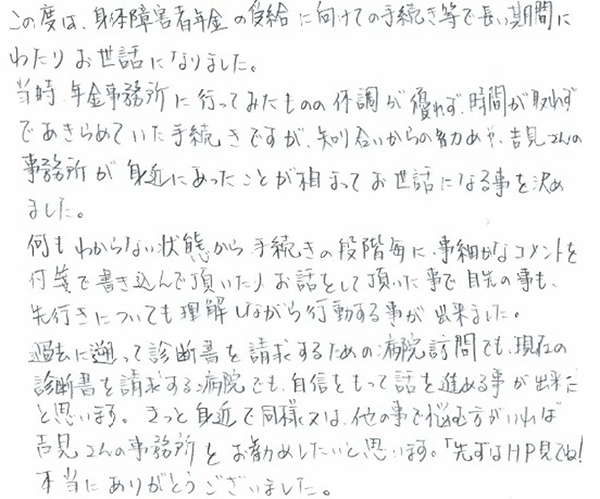 この度は、身体障害者年金の受給に向けての手続き等で長い期間に
わたりお世話になりました。
当時、年金事務所に行ってみたものの体調が優れず、時間が取れず
であきらめていた手続きですが、知り合いからの勧めや、吉見さんの
事務所が身近にあったことが相まってお世話になる事を決め
ました。
何もわからない状態から手続きの段階毎に、事細かなコメントを
付箋で書き込んで頂いたりお話をして頂いた事で目先の事も、
先行きについても理解しながら行動する事が出来ました。
過去に遡って診断書を請求するための病院訪問でも、現在の
診断書を請求する病院でも、自信をもって話を進める事が出来た
と思います。きっと身近で同様又は、他の事で悩む方がいれば
吉見さんの事務所をお勧めしたいと思います。「先ずはHP見てね!
本当にありがとうございました。